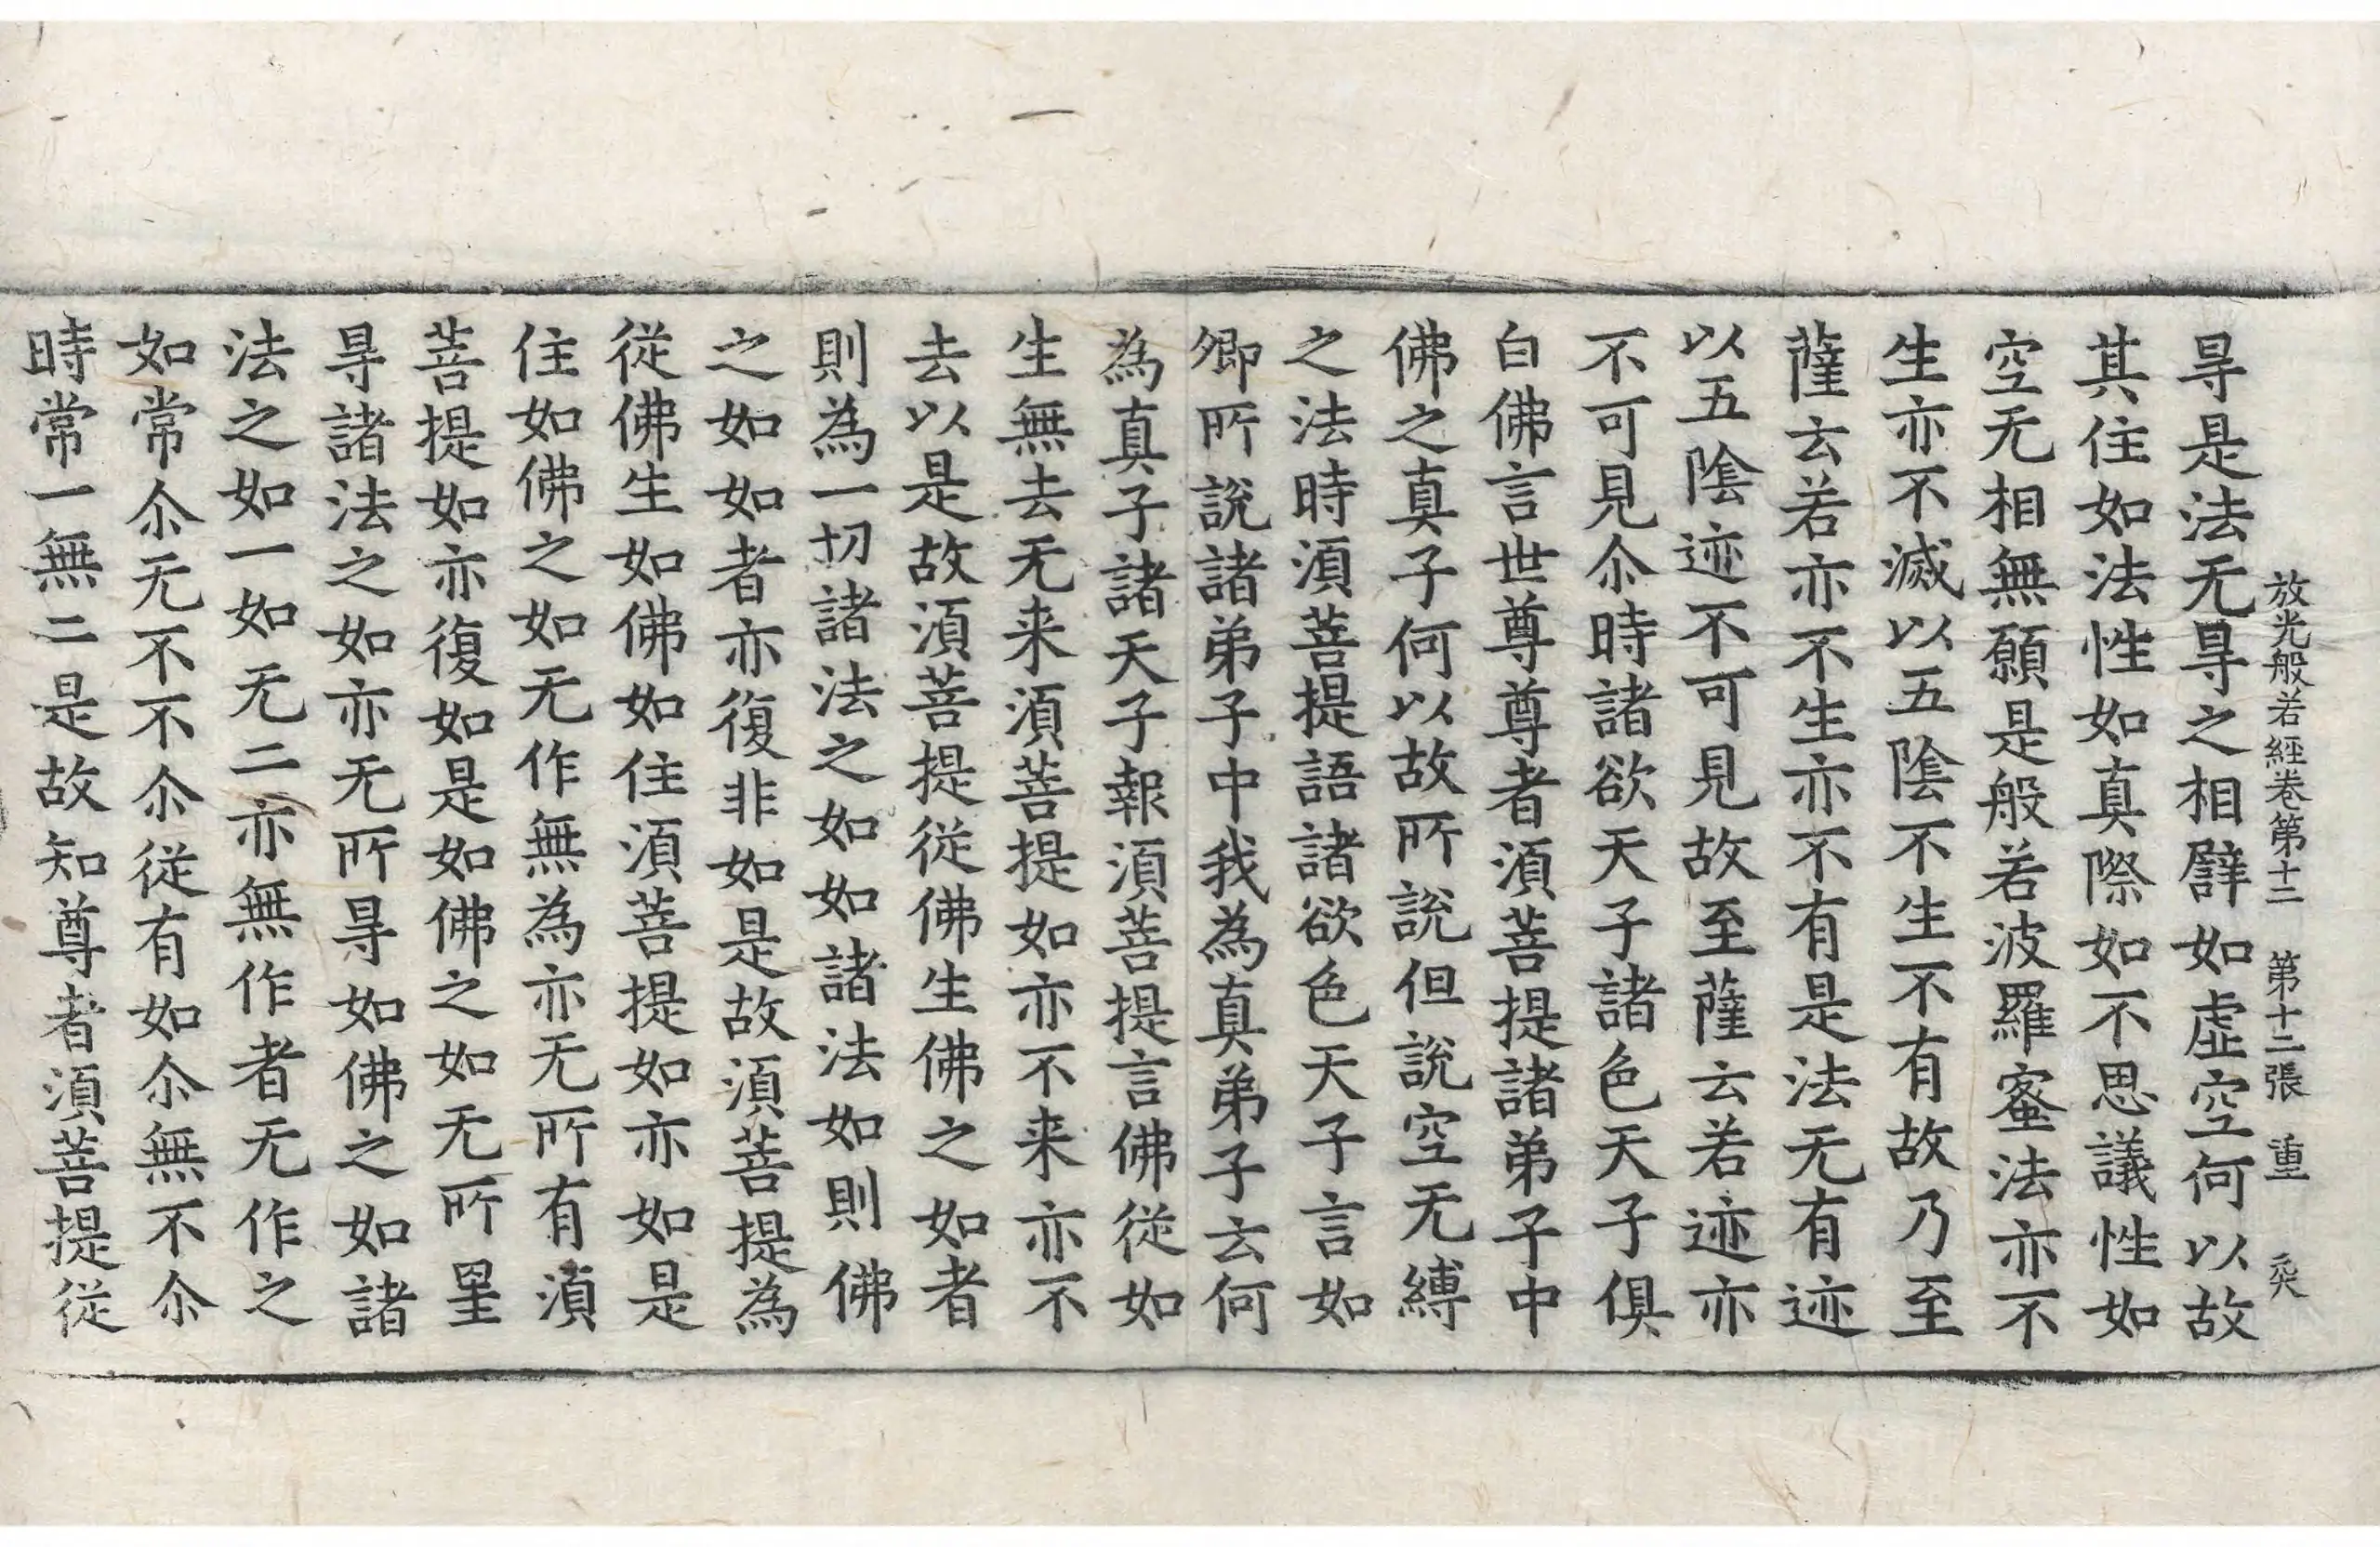 放光般若經卷第十二　第十二張　重　㷋
㝵是法无㝵之相譬如虛空何以故
其住如法性如真際如不思議性如
空无相無願是般若波羅蜜法亦不
生亦不滅以五陰不生不有故乃至
薩云若亦不生亦不有是法无有迹
以五陰迹不可見故至薩云若迹亦
不可見尒時諸欲天子諸色天子俱
白佛言世尊尊者湏菩提諸弟子中
佛之真子何以故所說但說空无縛
之法時湏菩提語諸欲色天子言如
卿所說諸弟子中我為真弟子云何
為真子諸天子報湏菩提言佛從如
生無去无来湏菩提如亦不来亦不
去以是故湏菩提從佛生佛之如者
則為一切諸法之如如諸法如則佛
之如如者亦復非如是故湏菩提為
從佛生如佛如住湏菩提如亦如是
住如佛之如无作無為亦无所有湏
菩提如亦復如是如佛之如无所㝵
㝵諸法之如亦无所㝵如佛之如諸
法之如一如无二亦無作者无作之
如常尒无不不尒從有如尒無不尒
時常一無二是故知尊者湏菩提從